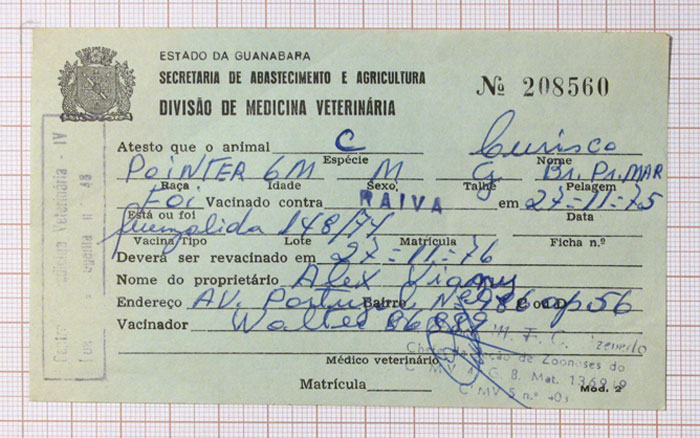 ESTADO DA GUANABARA
SECRETARIA DE ABASTECIMENTO E AGRICULTURA
DIVISÃO DE MEDICINA VETERINÁRIA
Nº 208560
Atesto que o animal C Curisco
Espécie Nome
POINTER 6M M G Br. Pr. MAR
Raça Idade Sexo Talhe Pelagem
Foi Vacinado contra RAIVA em 27-11-75
Está ou foi Data
148/74
Vacina Tipo Lote Matrícula Ficha n.º
Deverá ser revacinado em 27-11-76
Nome do proprietário Alex
Endereço AV. Portugal, Nº 986 ap 56
Bairro C o d.
Vacinador Walter 86889
Chefe da Seção de Zoonoses do
Médico veterinário
G. B. Mat.
Matrícula
C MV 5 n.º
Mod. 2
Veterinária - IV